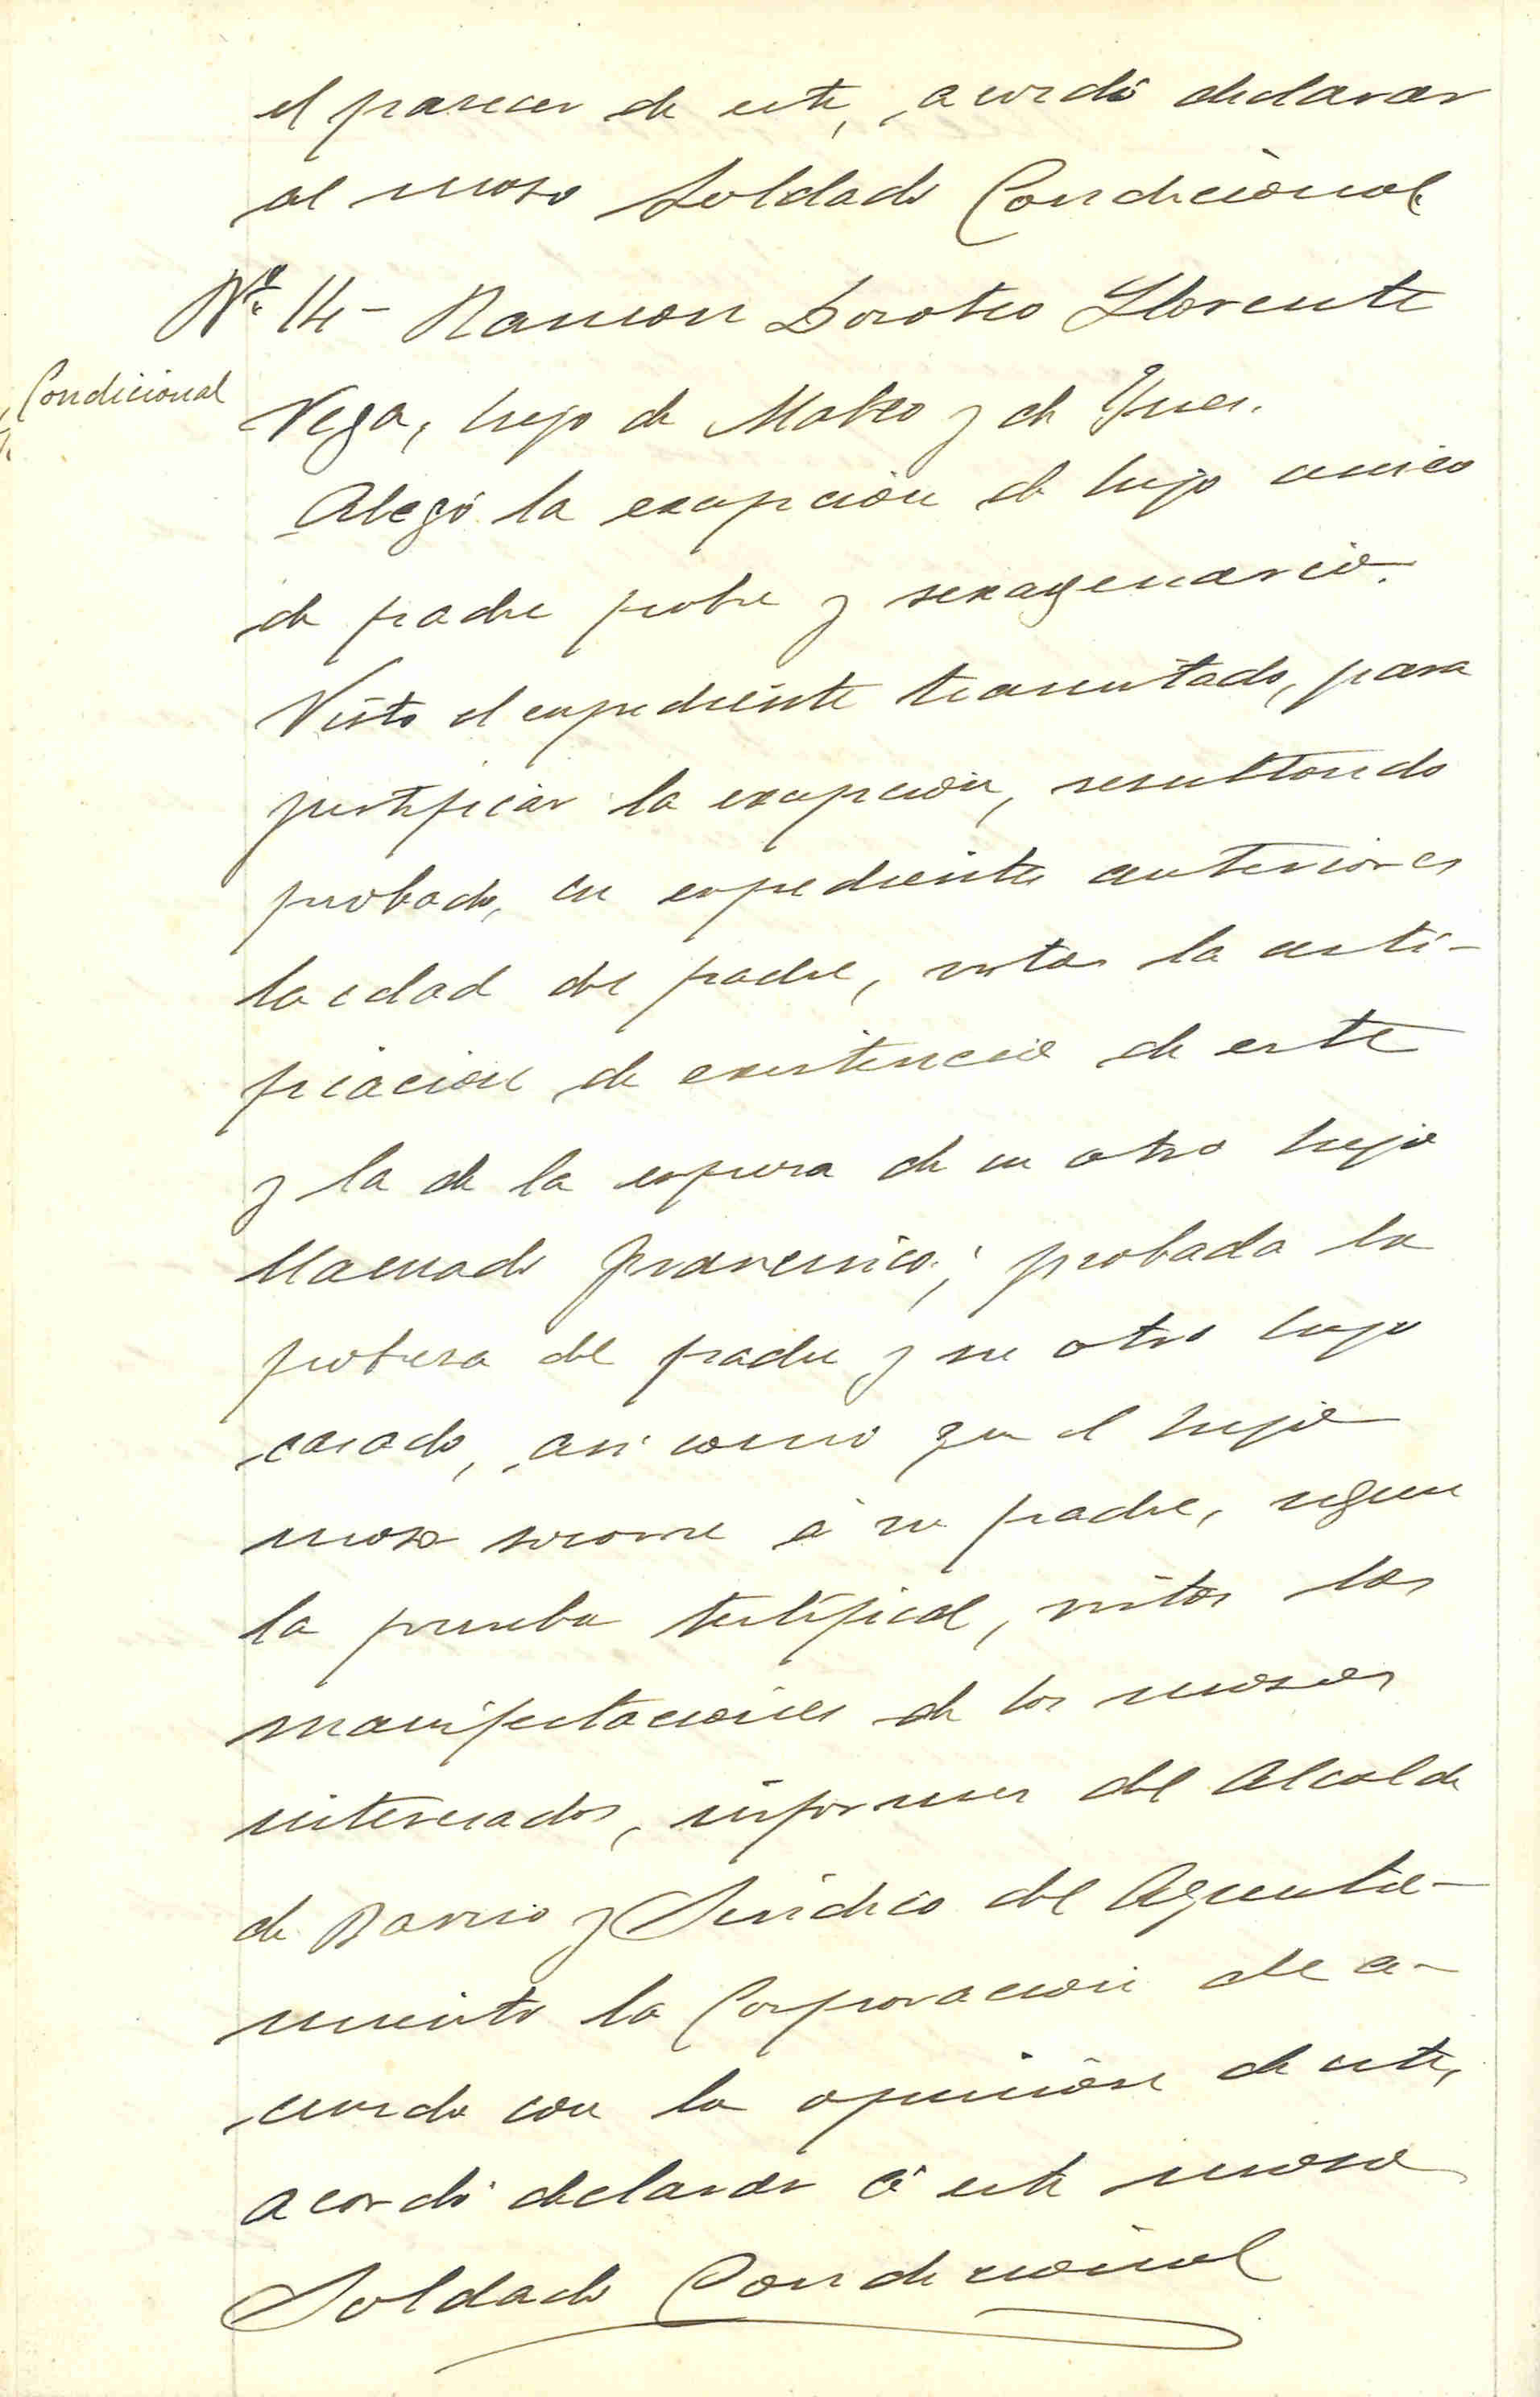 el parecer de este, acordó declarar
al moso Soldado Condicional.
Nº 14 - Ramon Doroteo Llorente
Condicional
Vega, hijo de Mateo y de Ynes.
Alegó la exepción de hijo unico
de padre pobre y sexagenario.
Visto el expediente tramitado, para
justificar la exepción, resultando
probado, en expedientes anteriores
la edad del padre, vistas la certi-
ficación de existencia de este
y la de la esposa de su otro hijo
llamado Francisco; probada la
pobresa del padre y su otro hijo
casado, asi como que el hijo
moso socorre á su padre, segun
la prueba testifical, vistas las
manifestaciones de los mosos
interesados, informes del Alcalde
de Barrio y Sindico del Ayunta-
miento la Corporación de a-
cuerdo con la opinión de este,
acordó declarar á este moso
Soldado Condicional